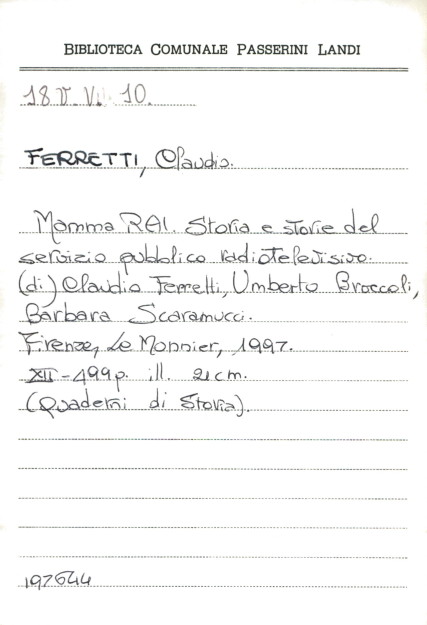 BIBLIOTECA COMUNALE PASSERINI LANDI
18 V. VI. 10.
FERRETTI, Claudio.
Mamma RAI. Storia e storie del
servizio pubblico radiotelevisivo.
(di) Claudio Ferretti, Umberto Broccoli,
Barbara Scaramucci.
Firenze, Le Monnier, 1997.
XII-499 p. ill. 21 cm.
(Quaderni di Storia).
197644